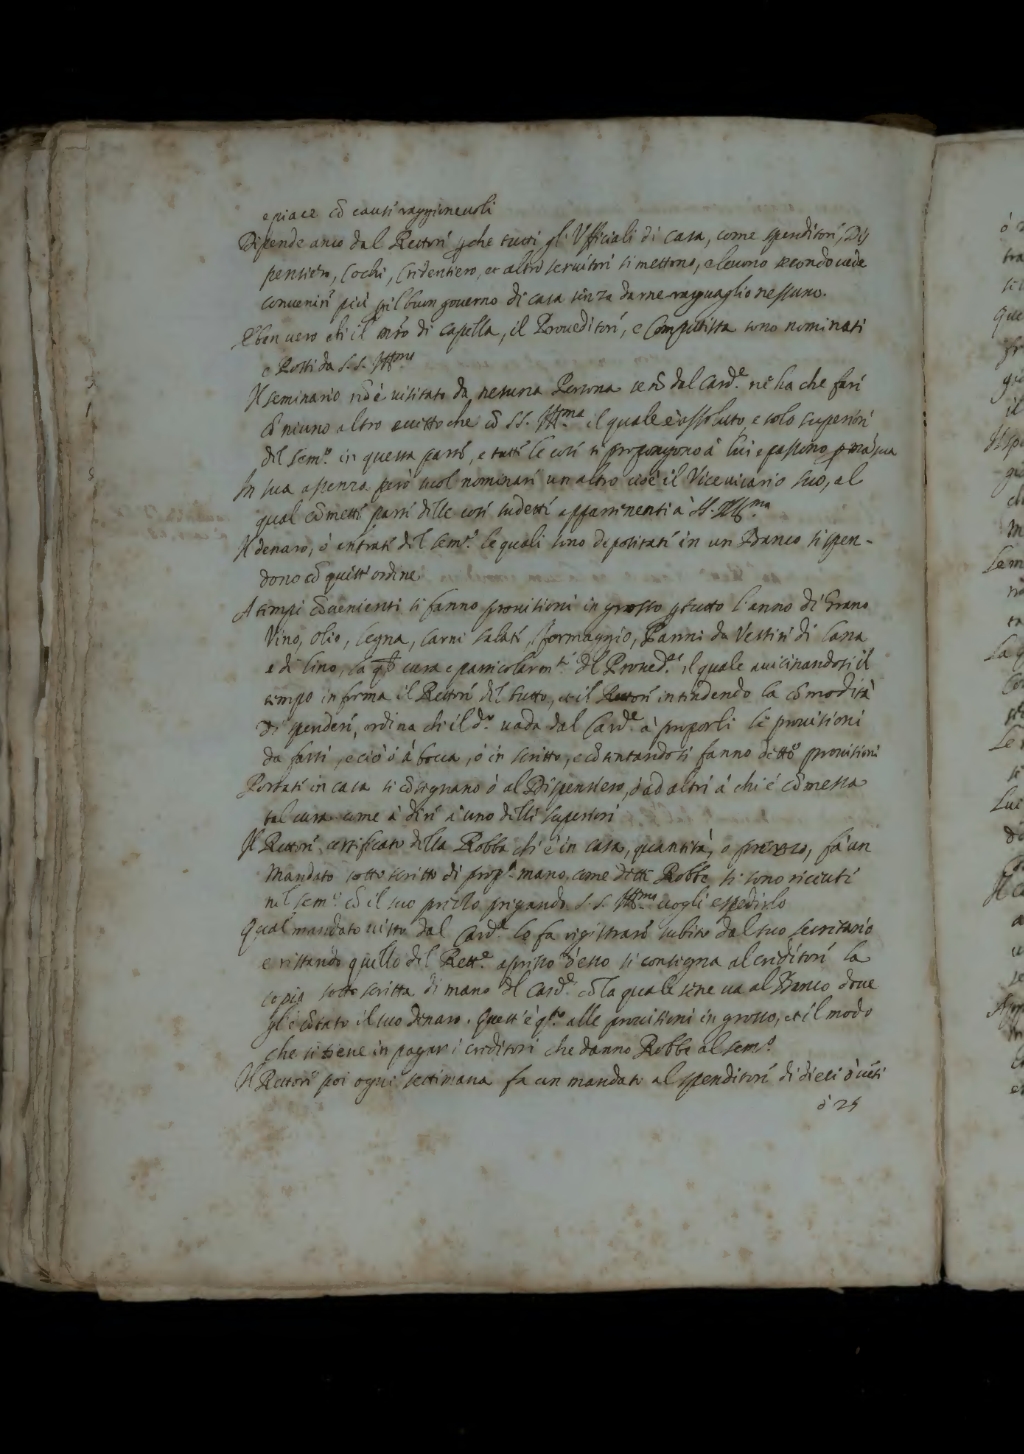 e piace cõ cause raggioneuoli
Dipende anco dal Rettore che tutti gl'Vfficiali di casa, come spenditori, Dis
pensiero, Cochi, Credentiero, et altro seruitori si mettono, e leuono secondo uede
conuenire più p il buon governo di casa senza darne ragguaglio nessuno.
E ben uero che il mro di capella, il Proueditore, e Computista sono nominati
e Posti da S. S. Illma
Il seminario nõ è uisitato da nessuna Persona se nõ dal Card.e nè ha che fare
cõ niuno altro eccetto che cõ SS. Illma il quale è assoluto e solo superiore
del sem.o in questa parte, e tutte le cose si propongono à lui e passono p mã sua
In sua assenza però suol nominare un altro cioè il Viceuicario suo, al
qual cõmette parte delle cose sudette appartinenti à SS. Illma
Il denaro, ò entrate del sem.o le quali sono depositate in un Banco si spen-
dono cõ quest'ordine
A tempi cõuenienti si fanno prouisioni in grosso p tutto l'anno di Grano
Vino, olio, legna, Carni salate, formaggio, Panni da Vestire di lana
e di lino, la qle cura e particolarm.te del Proued.re il quale auicinandosi il
tempo informa il Rettore del tutto, et il Rettore intendendo la cõmodità
di spendere, ordina che il d.o uada dal Card.e à proporli le prouisioni
da farsi, e ciò ò à bocca, ò in scritto, e cõtentandosi fanno dette prouisioni
Portate in casa si cõsegnano ò al Dispensiero, ò ad altri à chi è cõmessa
tal cura come à dire à uno delli superiori
Il Rettore certificato della Robba che è in casa, quantità, e prezzo, fà un
Mandato sotto scritto di prop.a mano come dette Robbe si sono riceute
nel sem.o cõ il suo prezzo, pregando S. S. Illma uogli espedirlo
Qual mandato uisto dal Card.e lo fa registrare subito dal suo secretario
e restando quello del Rett.e apresso d'esso si consegna al creditore la
copia sotto scritta di mano del Card.e cõ la quale sene ua al Banco doue
gl'è cõtato il suo denaro. Quest'è q.to alle prouisioni in grosso, et il modo
che si tiene in pagar i creditori che danno Robbe al sem.o
Il Rettore poi ogni settimana fa un mandato al spenditore di dieci ò uẽti
ò 25